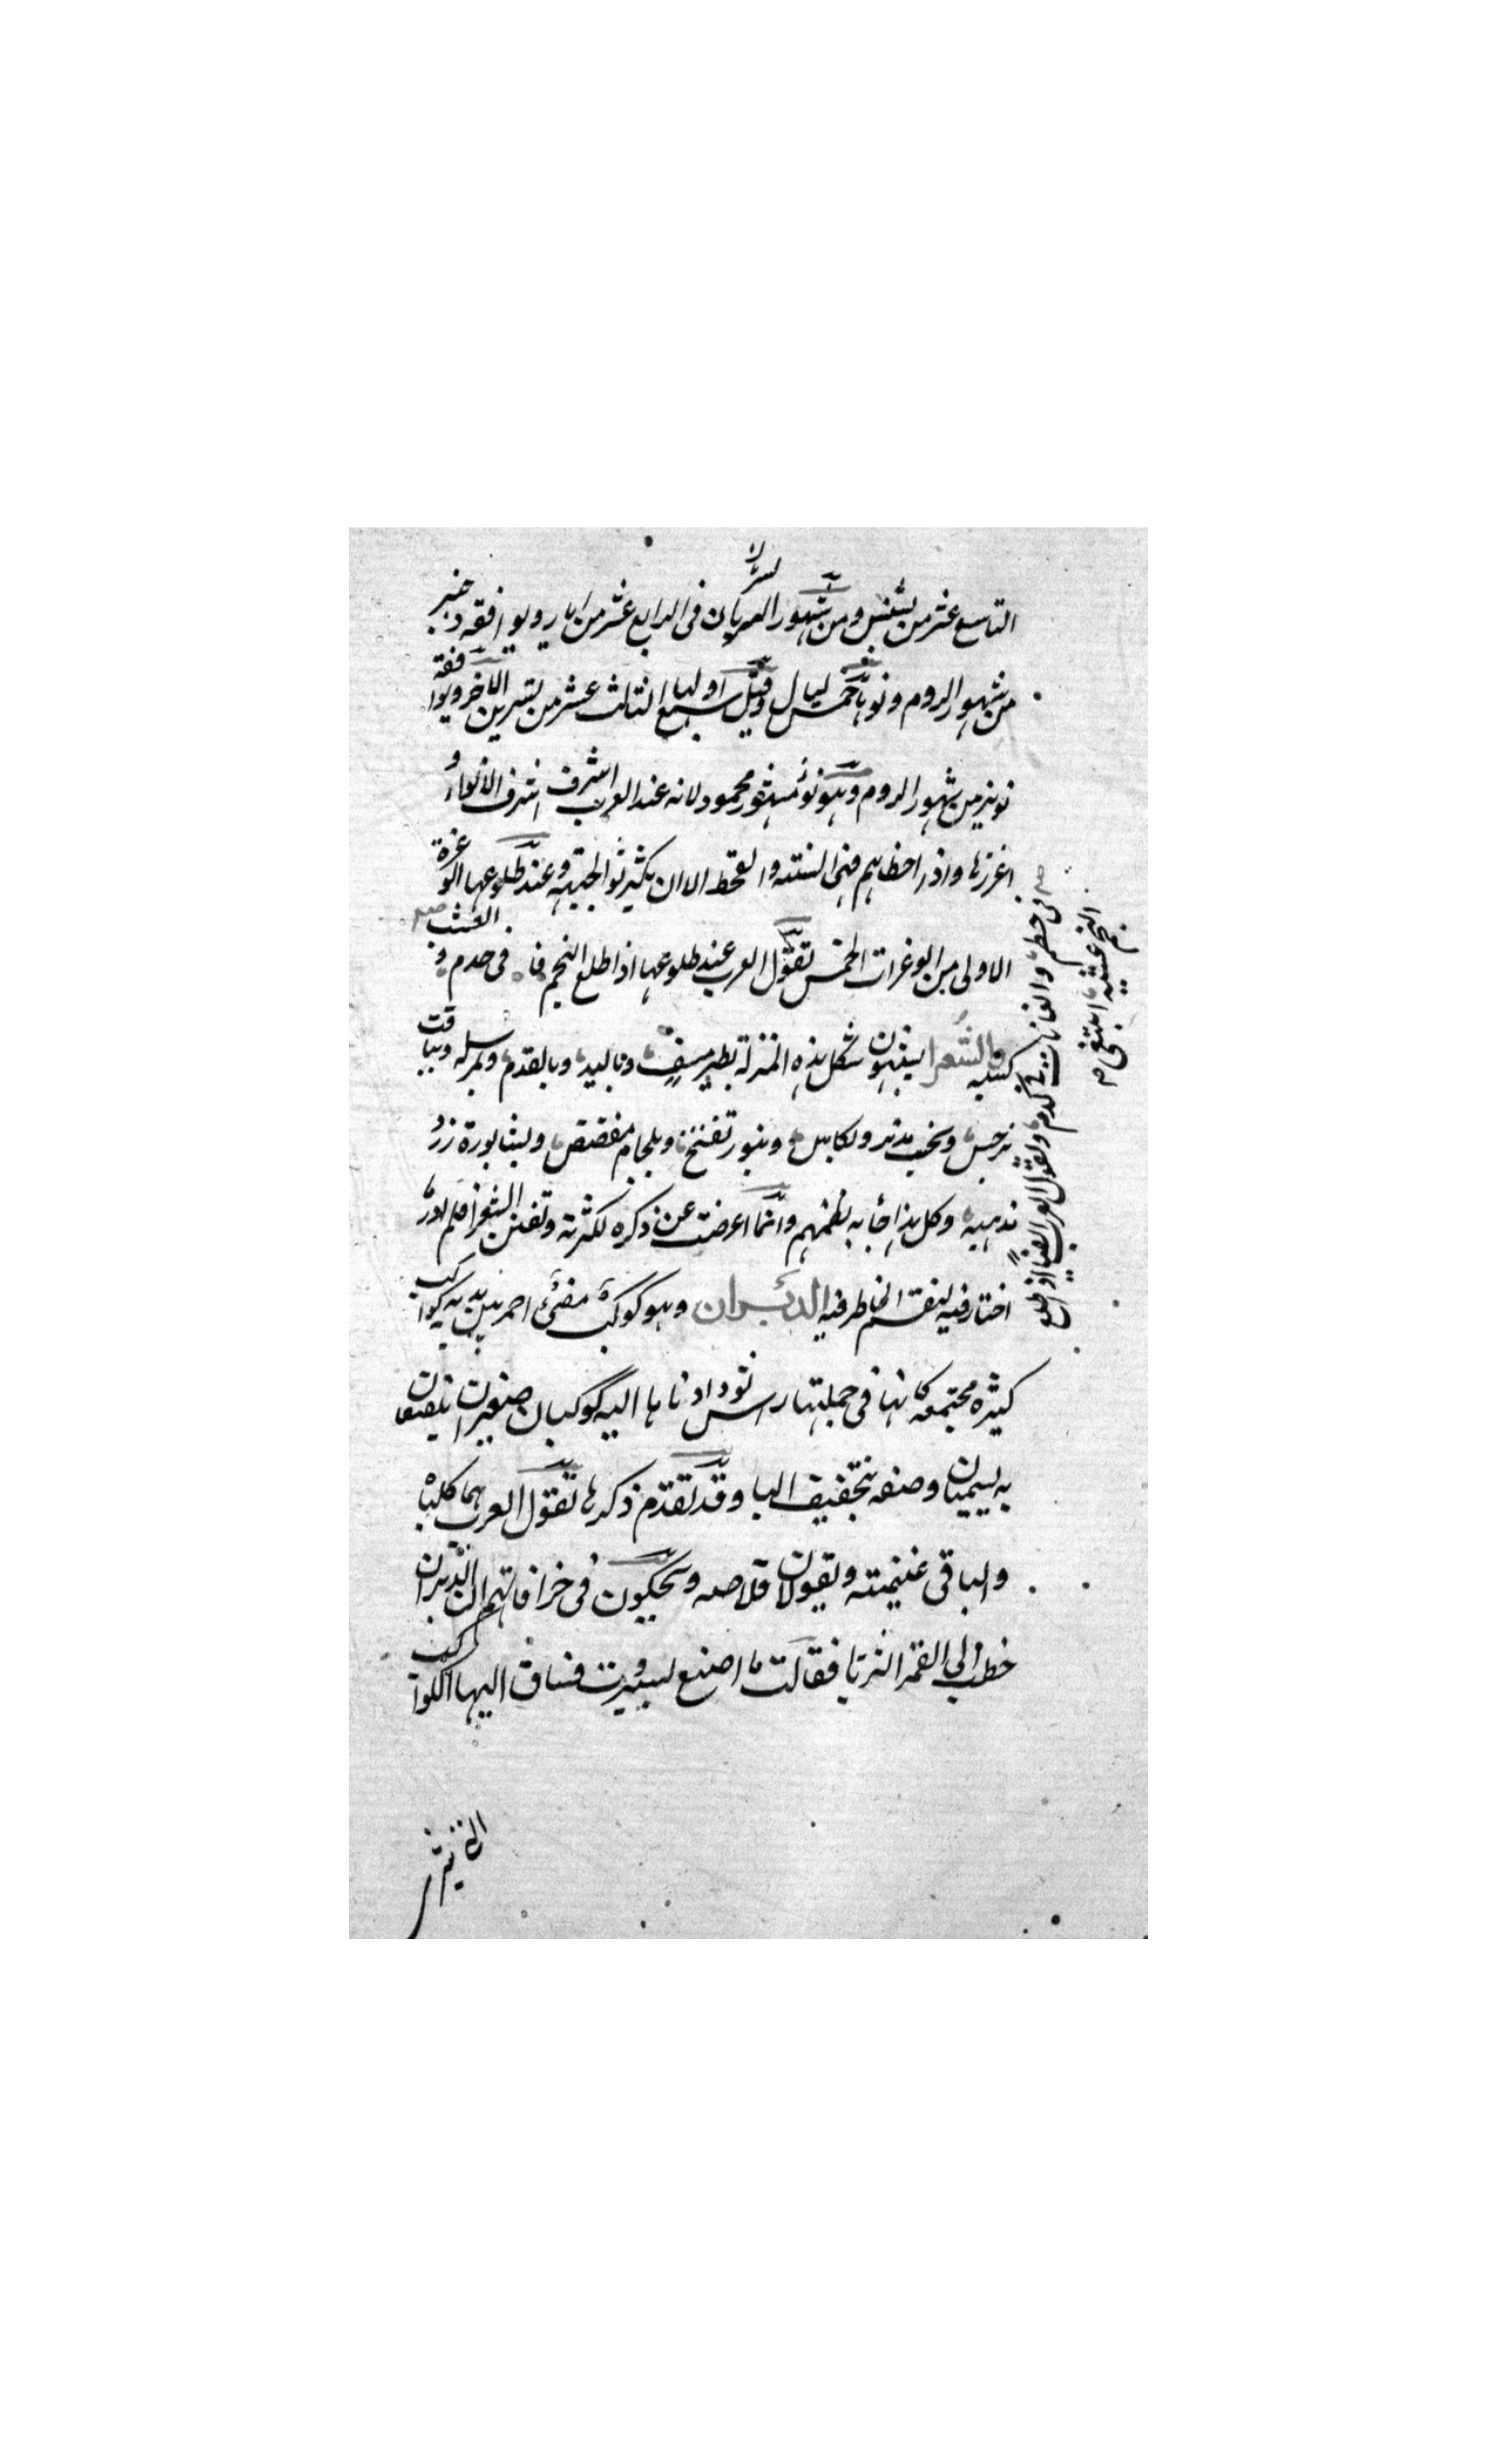 التاسع عشر من بشنس ومن شهور السريان فى الرابع عشر من ايار ويوافقه دخنبر
من شهور الروم ونوءها خمس ليال وقيل سبع اولها الثالث عشر من تشرين الاخر ويوافقه
نونبر من شهور الروم وهو نوء مشهور محمود لانه عند العرب اشرف الانواء و
اغزرها واذا اخطاهم فهى السنة والقحط الا ان يكثر نوء الجبهه وعند طلوعها الوغرة
الاولى من الوغرات الخمس تقول العرب عند طلوعها اذا طلع النجم فا فى حدم و
العشب
فى حطم والعانات فى كدم وتقول العرب ايضا اذا طلع
النجم عشيه ابتغى
والشعرا يشبهون شكل هذه المنزلة بطير مسف وباليد وبالقدم وبمرسله وبباقت
نرجس وبخب بدبر وبكابس وبنور تفتح وبلجام مفضض وبشابورة زر
ذهبيه وكل هذا جا به نظمهم وانما اعرضت عن ذكره لكثرته وتفنن الشعرا فلم ادر ما
اختار فيه لينقسم الخاطر فيه الدبران وهو كوكب مضىء احمر بين يديه كواكب
كثيره مجتمعه كانها فى جملتها راس ثور ادناها اليه كوكبان صغيران يلتصقان
به يسميان وصنفه بتخفيف البا وقد تقدم ذكرها تقول العرب هما كلباه
والباقى غنيمته ويقولان قلاصه ويحكون فى خرافاتهم ان الدبران
خطب الى القمر الثريا فقالت ما اصنع بسبروت فساق اليها الكواكب